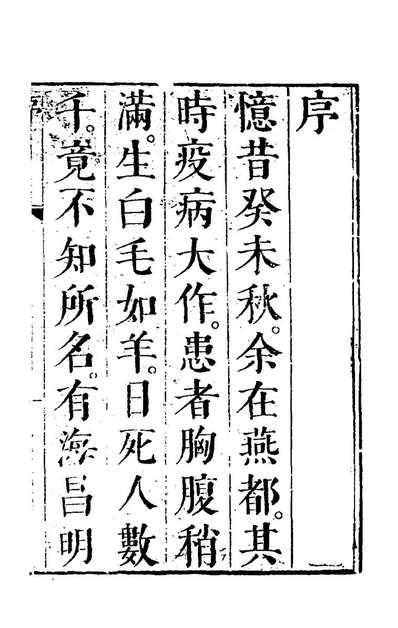 序
憶昔癸未秋。余在燕都。其
時疫病大作。患者胸腹稍
滿。生白毛如羊。日死人數
千。竟不知所名。有海昌明